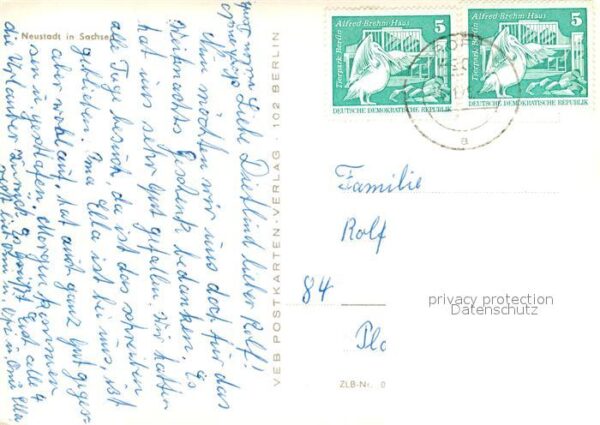 Neustadt in Sachsen
Liebe Dietlind lieber Rolf!
Nun möchten wir uns doch für das
Weihnachts Geschenk bedanken. Es
hat uns sehr gut gefallen. Wir hatten
alle Tage besuch, da ist das schreiben
geblieben. Oma Ella ist bei uns, ist
aber wohlauf, hat auch ganz gut geges-
sen u. geschlafen. Morgen kommen
die Urlauber zurück. Es grüßt Euch alle 4
Opi u. Omi Ella
VEB POSTKARTEN-VERLAG · 102 BERLIN
Alfred-Brehm-Haus
5
Tierpark Berlin
DEUTSCHE DEMOKRATISCHE REPUBLIK
Alfred-Brehm-Haus
5
Tierpark Berlin
DEUTSCHE DEMOKRATISCHE REPUBLIK
a
Familie
Rolf
84
privacy protection
Datenschutz
ZLB-Nr. 0